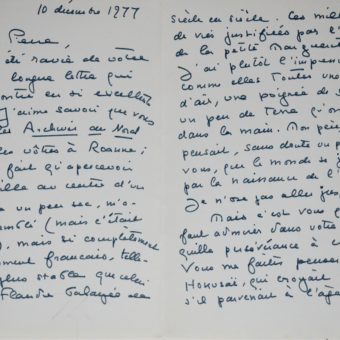 10 décembre 1977
Pierre,
été ravie de votre
longue lettre qui
ontre en si excellent
J'aime savoir que vous
les Archives du Nord
les vôtres à Roanne;
fait qu'apercevoir
ille au centre d'un
un peu sec, m'a-
semblé (mais c'était
), mais si complètement
ment français, telle-
plus stable que celui
Flandre balayée de
siècle en siècle. Ces mille
de vies justifiées par l'
de la petite Marguerite
J'ai plutôt l'impress
comme elles toutes une
d'air, une poignée de s
un peu de terre qu'on
dans la main. Mon père
pensait, sans doute un p
vous, que le monde se j
par la naissance de l'
Je n'ose pas aller jusq
Mais c'est vous
faut admirer dans votre
quille persévérance à c
Vous me faites penser
Hokusaï, qui croyait
s'il parvenait à l'âge